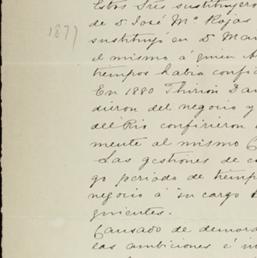 Estos tres sustituyero
de D. José Mª Rojas
1877
sustituyó en D. Man
el mismo á quien
tiempos habia confi
En 1880 Thirión Da
dieron del negocio y
del Rio confirieron
mente al mismo
Las gestiones de c
go periodo de tiemp
negocio á su cargo
guientes.
Causado de demora
las ambiciones é in